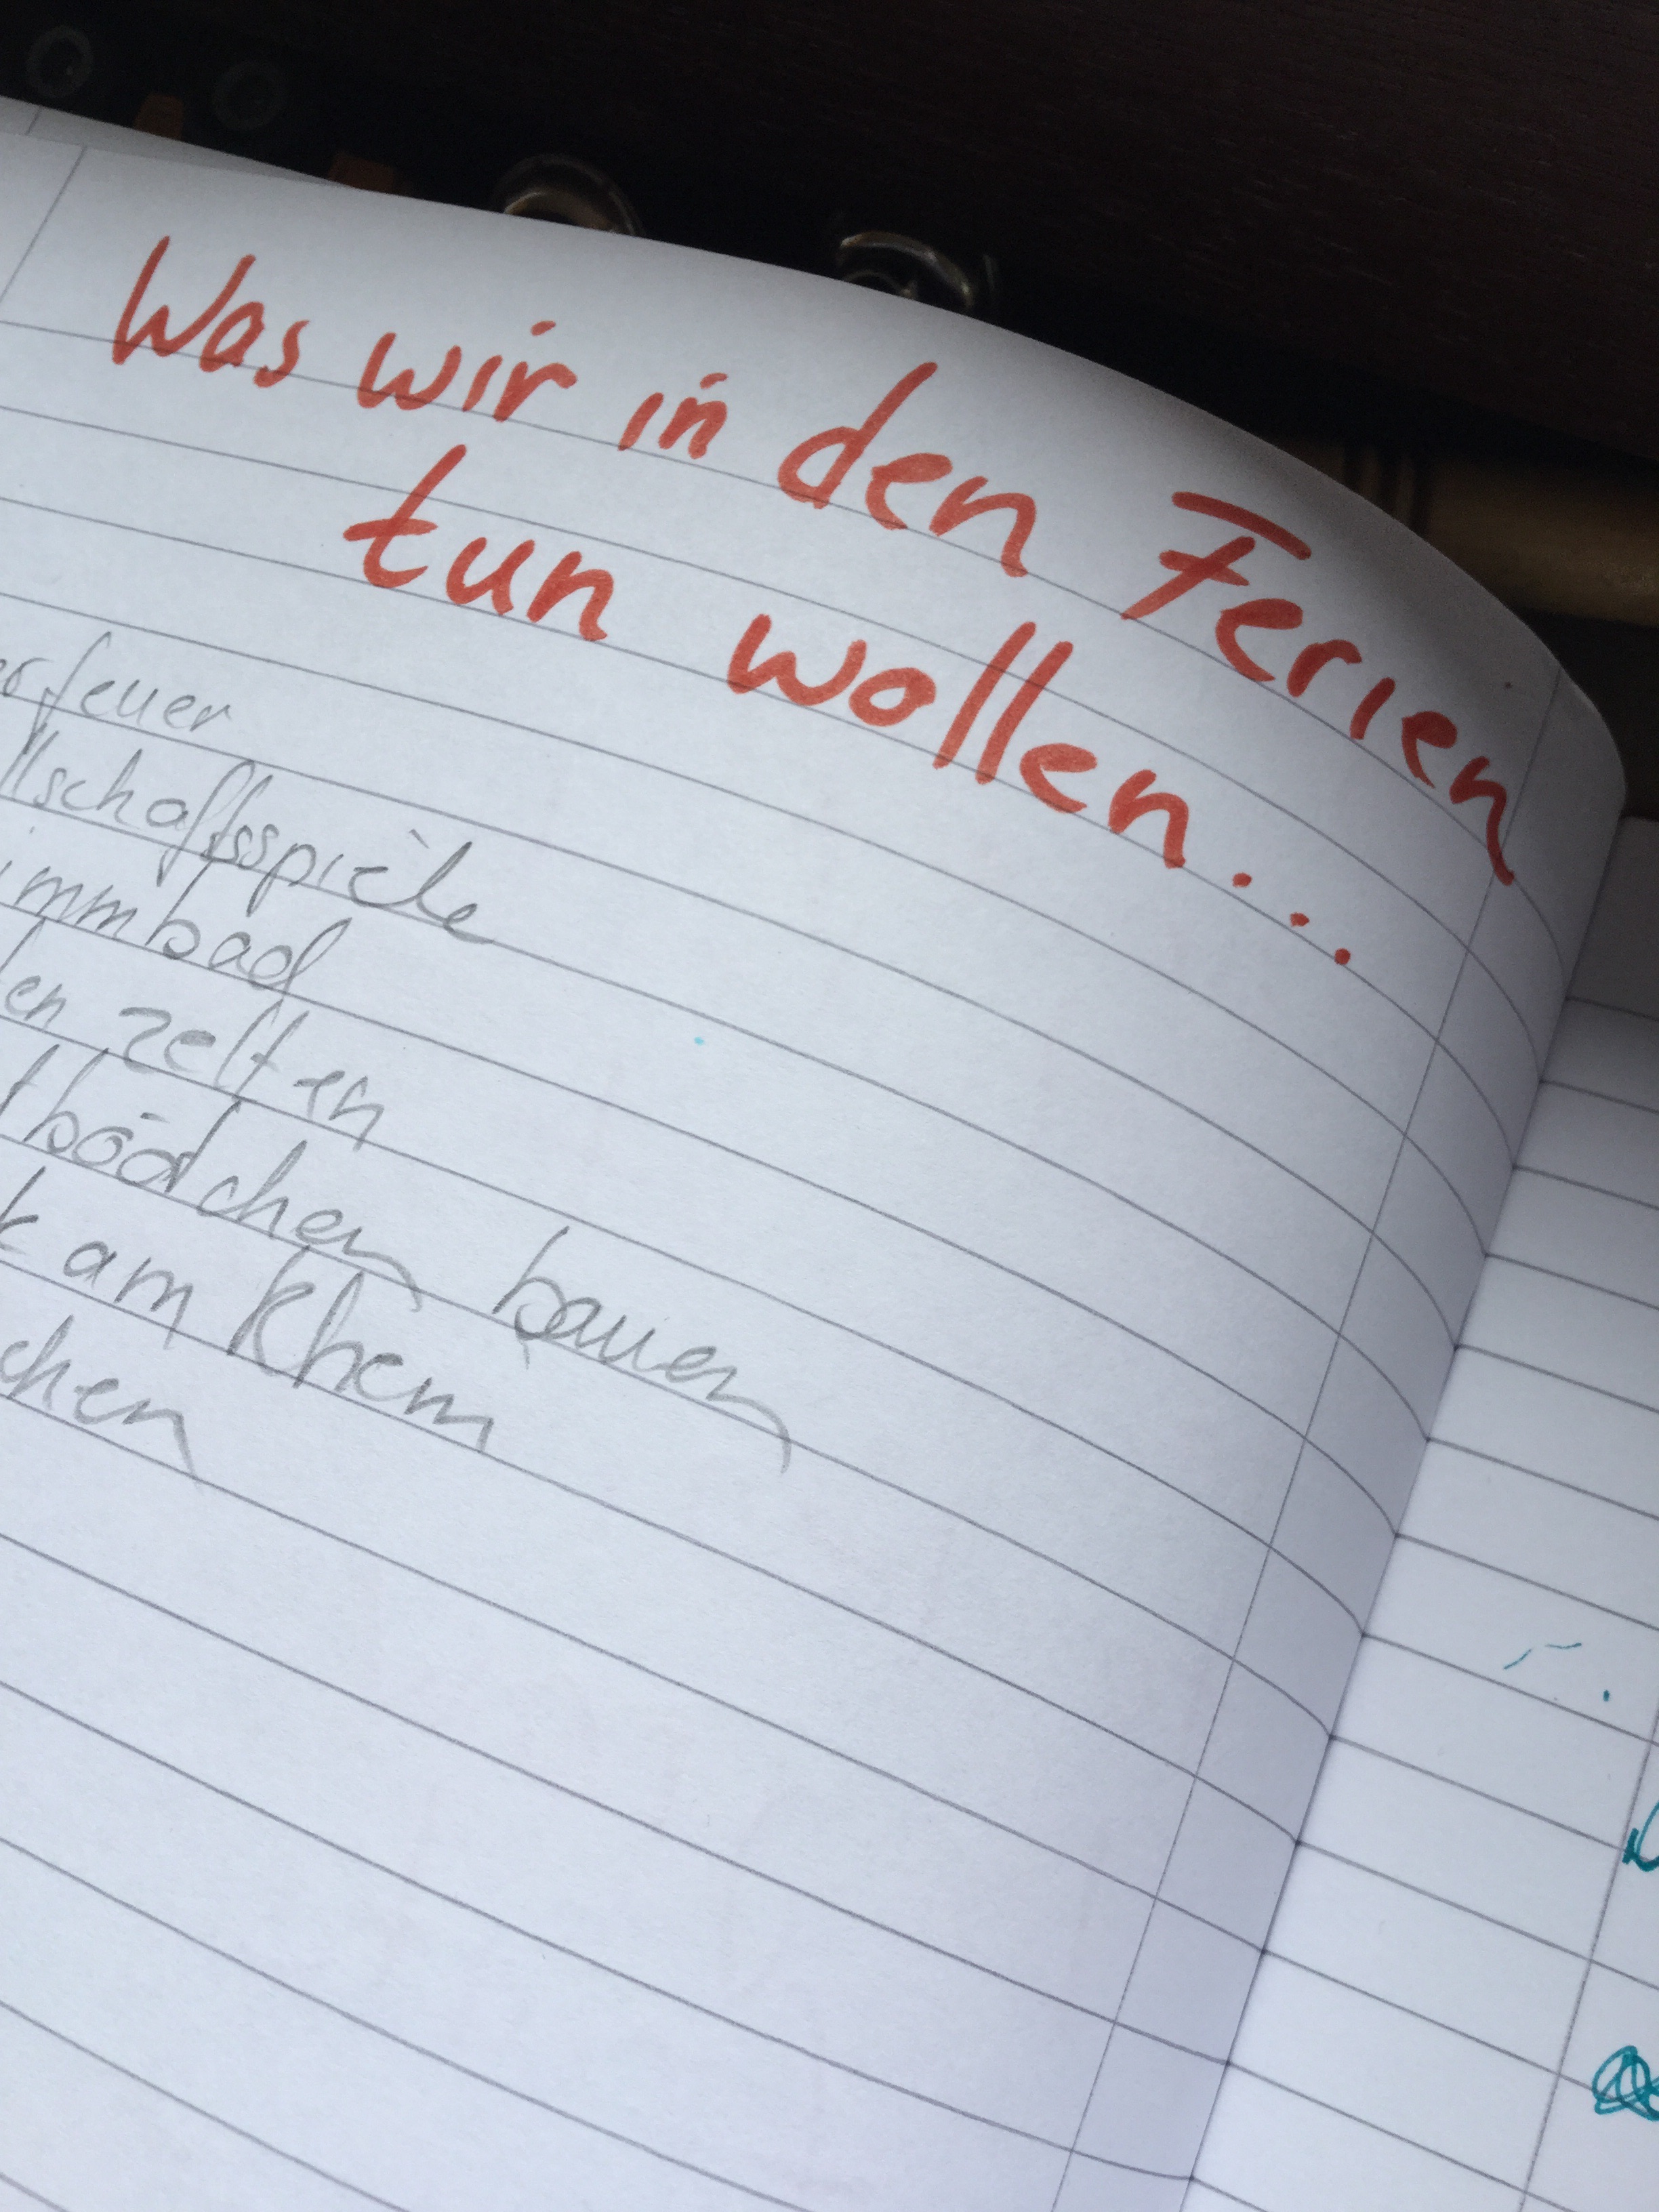 Was wir in den Ferien
tun wollen...
erfeuer
llschaftsspiele
immbad
en zelten
bödchen bauen
k am Rhein
chen